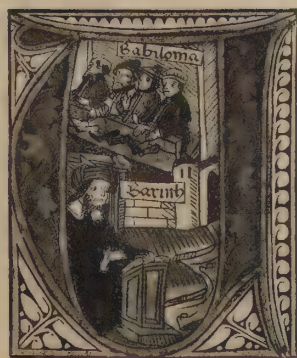 Babilonia
Baruch